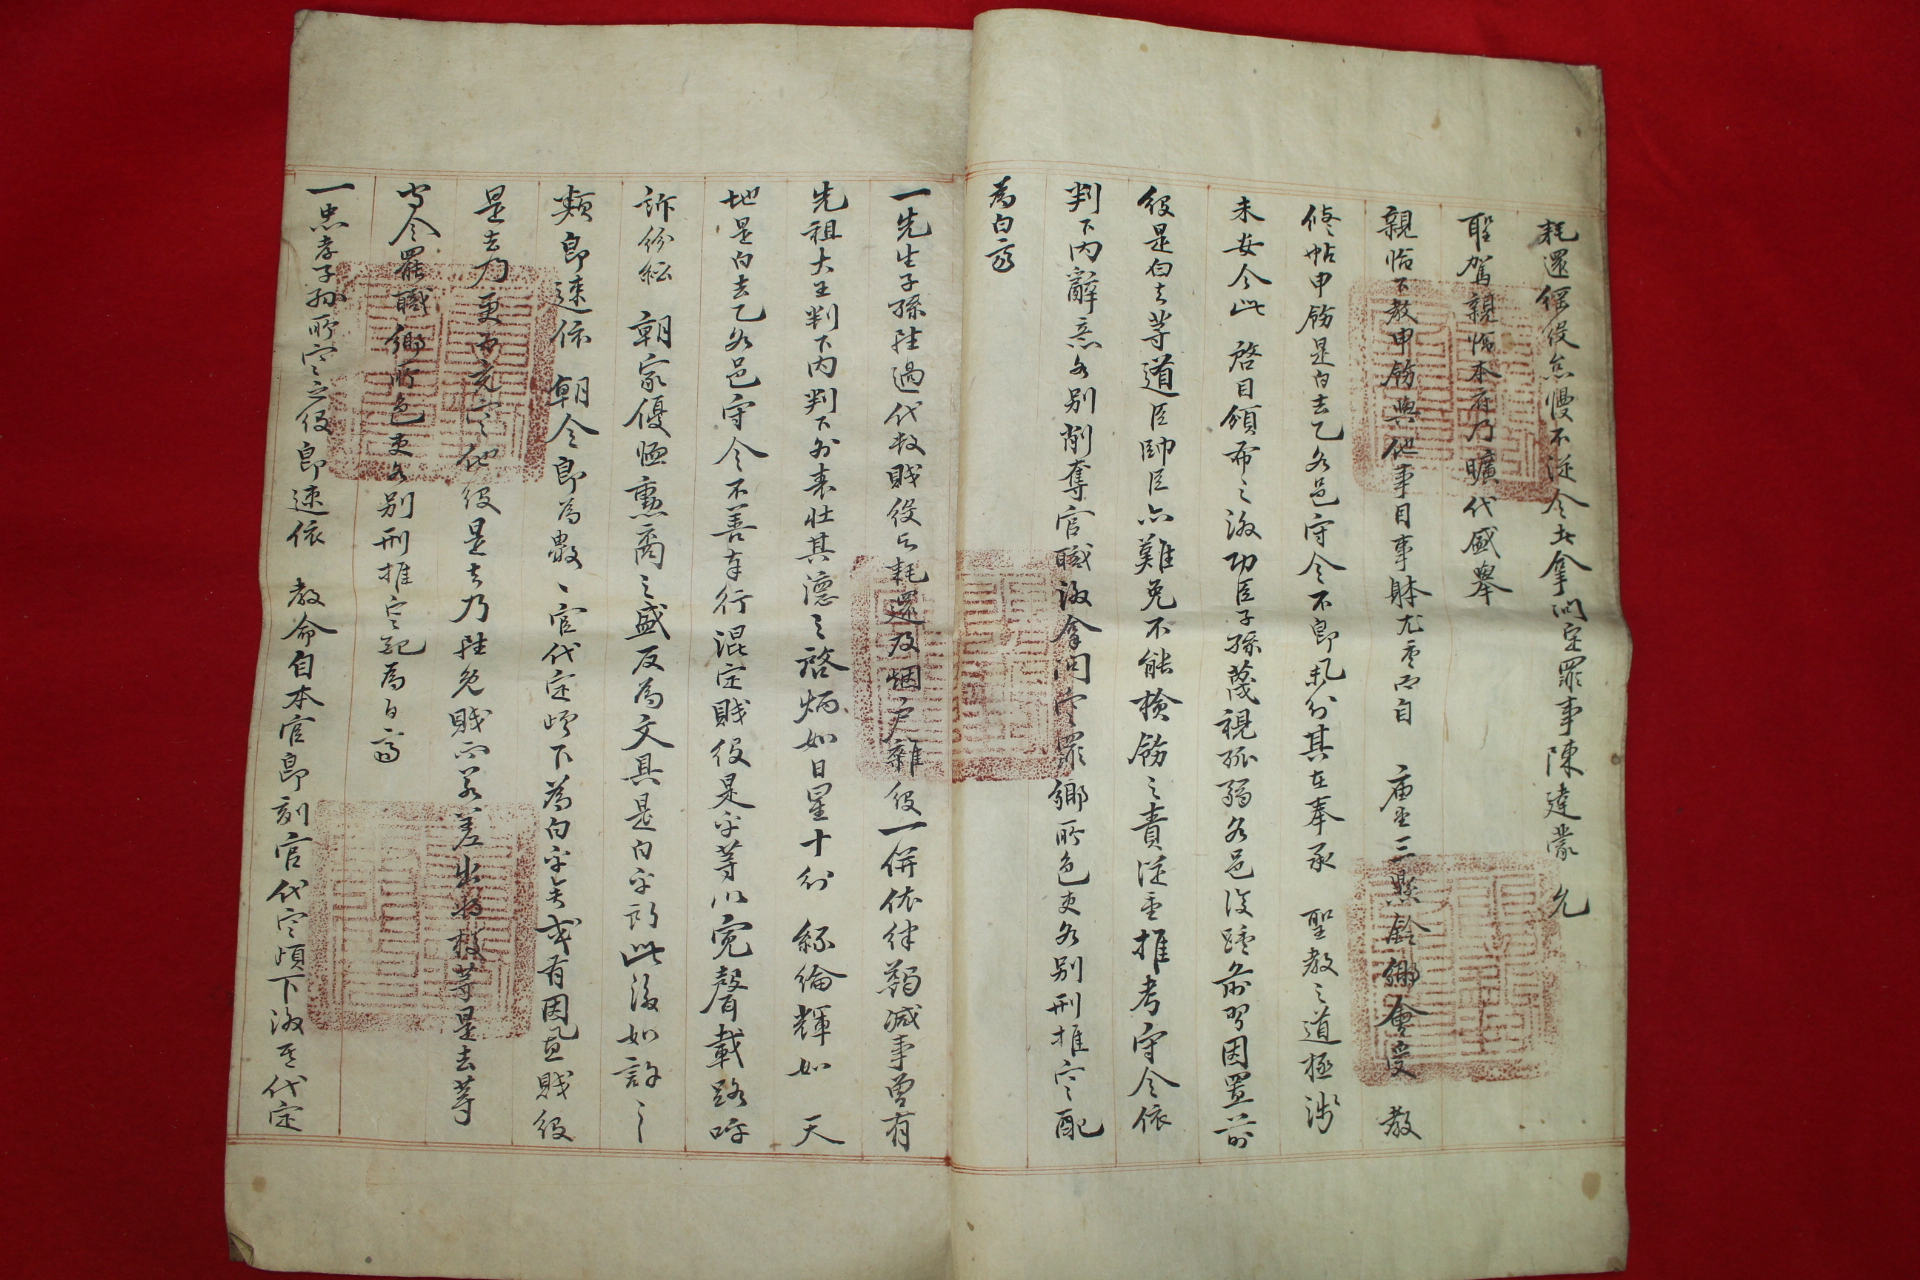 耗還保役怠慢不從令者拿問定罪事陳達蒙 允
聖駕親臨本府乃曠代盛舉
親臨下教申飭與他事目事体尤重而自 廟至三懸鈴鄉會受 教
修帖申飭是白去乙各邑守令不卽擧行其在奉承 聖教之道極涉
未安今此 啓目頒布之後功臣子孫蔑視孤弱各邑復踵前習因置前
役是白去等道臣帥臣亦難免不能檢飭之責從重推考守令依
判下內辭意各別削奪官職後拿問定罪鄉所色吏各別刑推定配
爲白齊
一先生子孫陞過代數賤役與耗還及烟戶雜役一倂依律蠲減事曾有
先祖大王判下內判下外表壯其德之啓炳如日星十行 絲綸輝如 天
地是白去乙各邑守令不善奉行混定賤役是乎等以寃聲載路呼
訴紛紜 朝家優恤勳裔之盛反爲文具是白乎所此後如許之
類卽速依 朝令卽爲數數官代定頉下爲白乎矣或有因
賤役
是去乃更爲充定他役是去乃陞免賤
差出將校等是去等
守令罷職鄉所色吏各別刑推定配爲白齊
一忠孝子孫所定之役卽速依 教命自本官卽刻官代定頉下後
代定